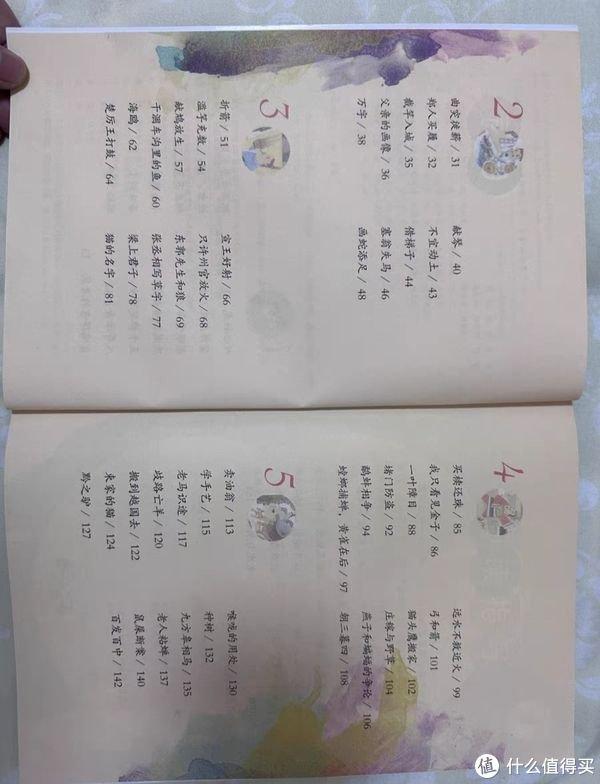 2
曲突徙薪 / 31
郑人买履 / 32
截竿入城 / 35
父亲的画像 / 36
万字 / 38
献琴 / 40
不宜动土 / 43
借梯子 / 44
塞翁失马 / 46
画蛇添足 / 48
3
折箭 / 51
滥竽充数 / 54
献鸠放生 / 57
干涸车沟里的鱼 / 60
海鸥 / 62
楚厉王打鼓 / 64
宣王好射 / 66
只许州官放火 / 68
东郭先生和狼 / 69
张丞相写草字 / 77
梁上君子 / 78
猫的名字 / 81
4
买椟还珠 / 85
我只看见金子 / 86
一叶障目 / 88
堵门防盗 / 92
鹬蚌相争 / 94
螳螂捕蝉，黄雀在后 / 97
远水不救近火 / 99
弓和箭 / 101
猫头鹰搬家 / 102
庄稼与野草 / 104
燕子和蝙蝠的争论 / 106
朝三暮四 / 108
5
卖油翁 / 113
学手艺 / 115
老马识途 / 117
歧路亡羊 / 120
搬到越国去 / 122
束家的猫 / 124
黔之驴 / 127
喉咙的用处 / 130
种树 / 132
九方皋相马 / 135
老人粘蝉 / 137
鼠屎断案 / 140
百发百中 / 142
值 什么值得买